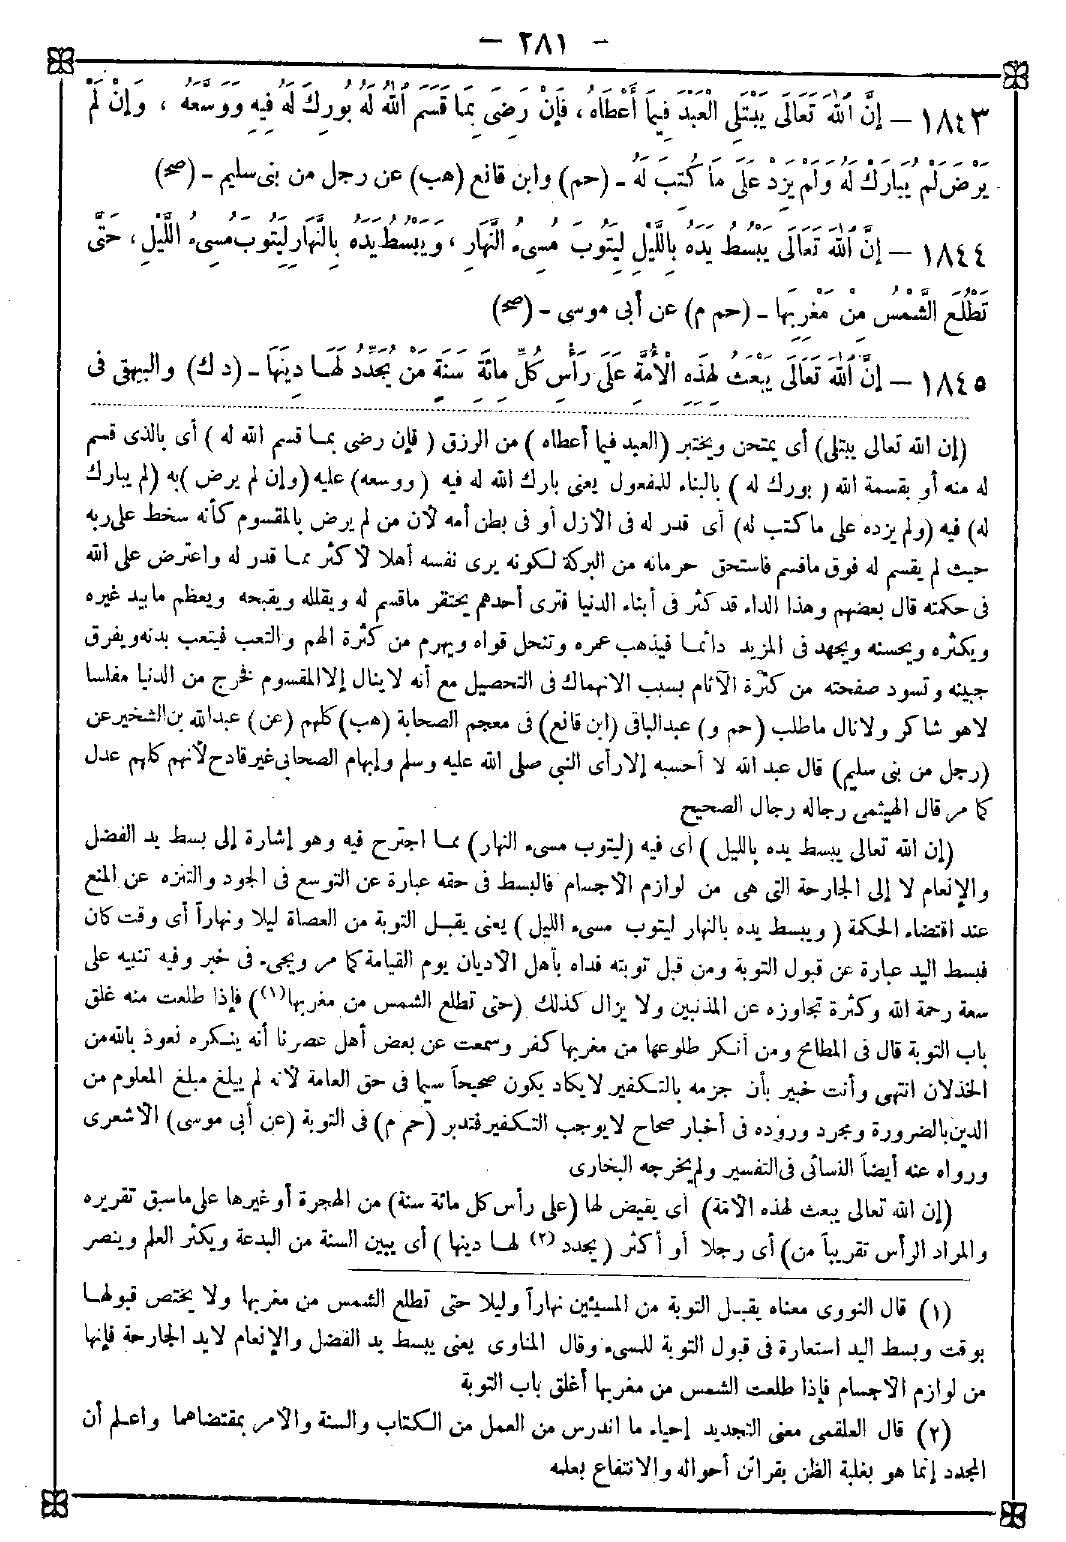 - ٢٨١ -
١٨٤٣ - إِنَّ اللّٰهَ تَعَالَى يَبْتَلِى الْعَبْدَ فِيمَا أَعْطَاهُ، فَإِنْ رَضِىَ بِمَا قَسَمَ اللّٰهُ لَهُ بُورِكَ لَهُ فِيهِ وَوَسَّعَهُ، وَإِنْ لَمْ
يَرْضَ لَمْ يُبَارَكْ لَهُ وَلَمْ يَزِدْ عَلَى مَا كُتِبَ لَهُ - (حم) وابن قانع (هب) عن رجل من بنى سليم - (صح)
١٨٤٤ - إِنَّ اللّٰهَ تَعَالَى يَبْسُطُ يَدَهُ بِاللَّيْلِ لِيَتُوبَ مُسِىءُ النَّهَارِ، وَيَبْسُطُ يَدَهُ بِالنَّهَارِ لِيَتُوبَ مُسِىءُ اللَّيْلِ، حَتَّى
تَطْلُعَ الشَّمْسُ مِنْ مَغْرِبِهَا - (حم م) عن أبى موسى - (صح)
١٨٤٥ - إِنَّ اللّٰهَ تَعَالَى يَبْعَثُ لِهَذِهِ الْأُمَّةِ عَلَى رَأْسِ كُلِّ مِائَةِ سَنَةٍ مَنْ يُجَدِّدُ لَهَا دِينَهَا - (د ك) والبيهقى فى
(إن الله تعالى يبتلى) أى يمتحن ويختبر (العبد فيما أعطاه) من الرزق (فإن رضى بما قسم الله له) أى بالذى قسم
له منه أو بقسمة الله (بورك له) بالبناء للمفعول يعنى بارك الله له فيه (ووسعه) عليه (وإن لم يرض) به (لم يبارك
له) فيه (ولم يزده على ما كتب له) أى قدر له فى الأزل أو فى بطن أمه لأن من لم يرض بالمقسوم كأنه سخط على ربه
حيث لم يقسم له فوق ماقسم فاستحق حرمانه من البركة لكونه يرى نفسه أهلا لأكثر مما قدر له واعترض على الله
فى حكمته قال بعضهم وهذا الداء قد كثر فى أبناء الدنيا فترى أحدهم يحتقر ماقسم له ويقلله ويقبحه ويعظم مابيد غيره
ويكثره ويحسنه ويجهد فى المزيد دائما فيذهب عمره وتنحل قواه ويهرم من كثرة الهم والتعب فيتعب بدنه ويفرق
جبينه وتسود صفحته من كثرة الآثام بسبب الانهماك فى التحصيل مع أنه لاينال إلا المقسوم فخرج من الدنيا مفلسا
لا هو شاكر ولا نال ماطلب (حم و) عبدالباقى (ابن قانع) فى معجم الصحابة (هب) كلهم (عن) عبدالله بن الشخير عن
(رجل من بنى سليم) قال عبد الله لا أحسبه إلا رأى النبي صلى الله عليه وسلم وإبهام الصحابى غير قادح لأنهم كلهم عدل
كما مر قال الهيثمى رجاله رجال الصحيح
(إن الله تعالى يبسط يده بالليل) أى فيه (ليتوب مسىء النهار) مما اجترح فيه وهو إشارة إلى بسط يد الفضل
والإنعام لا إلى الجارحة التى هى من لوازم الأجسام فالبسط فى حقه عبارة عن التوسع فى الجود والتنزه عن المنع
عند اقتضاء الحكمة (ويبسط يده بالنهار ليتوب مسىء الليل) يعنى يقبل التوبة من العصاة ليلا ونهاراً أى وقت كان
فبسط اليد عبارة عن قبول التوبة ومن قبل توبته فداه بأهل الأديان يوم القيامة كما مر ويجىء فى خبر وفيه تنبيه على
سعة رحمة الله وكثرة تجاوزه عن المذنبين ولا يزال كذلك (حتى تطلع الشمس من مغربها(١)) فإذا طلعت منه غلق
باب التوبة قال فى المطامح ومن أنكر طلوعها من مغربها كفر وسمعت عن بعض أهل عصرنا أنه ينكره نعوذ بالله من
الخذلان انتهى وأنت خبير بأن جزمه بالتكفير لا يكاد يكون صحيحاً سيما فى حق العامة لأنه لم يبلغ مبلغ المعلوم من
الدين بالضرورة ومجرد وروده فى أخبار صحاح لايوجب التكفير فتدبر (حم م) فى التوبة (عن أبى موسى) الأشعرى
ورواه عنه أيضاً النسائى فى التفسير ولم يخرجه البخارى
(إن الله تعالى يبعث لهذه الأمة) أى يقيض لها (على رأس كل مائة سنة) من الهجرة أو غيرها على ماسبق تقريره
والمراد الرأس تقريباً من) أى رجلا أو أكثر (يجدد (٢) لها دينها) أى يبين السنة من البدعة ويكثر العلم وينصر
(١) قال النووى معناه يقبل التوبة من المسيئين نهاراً وليلا حتى تطلع الشمس من مغربها ولا يختص قبولها
بوقت وبسط اليد استعارة فى قبول التوبة للمسىء وقال المناوى يعنى يبسط يد الفضل والإنعام لايد الجارحة فإنها
من لوازم الأجسام فإذا طلعت الشمس من مغربها أغلق باب التوبة
(٢) قال العلقمى معنى التجديد إحياء ما اندرس من العمل من الكتاب والسنة والأمر بمقتضاهما واعلم أن
المجدد إنما هو بغلبة الظن بقرائن أحواله والانتفاع بعلمه